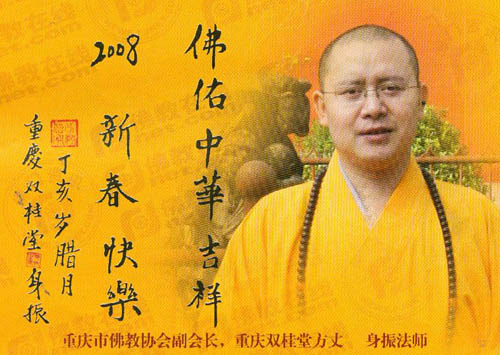 佛佑中華吉祥
2008 新春快樂
丁亥岁腊月
重慶双桂堂身振
重庆市佛教协会副会长，重庆双桂堂方丈 身振法师